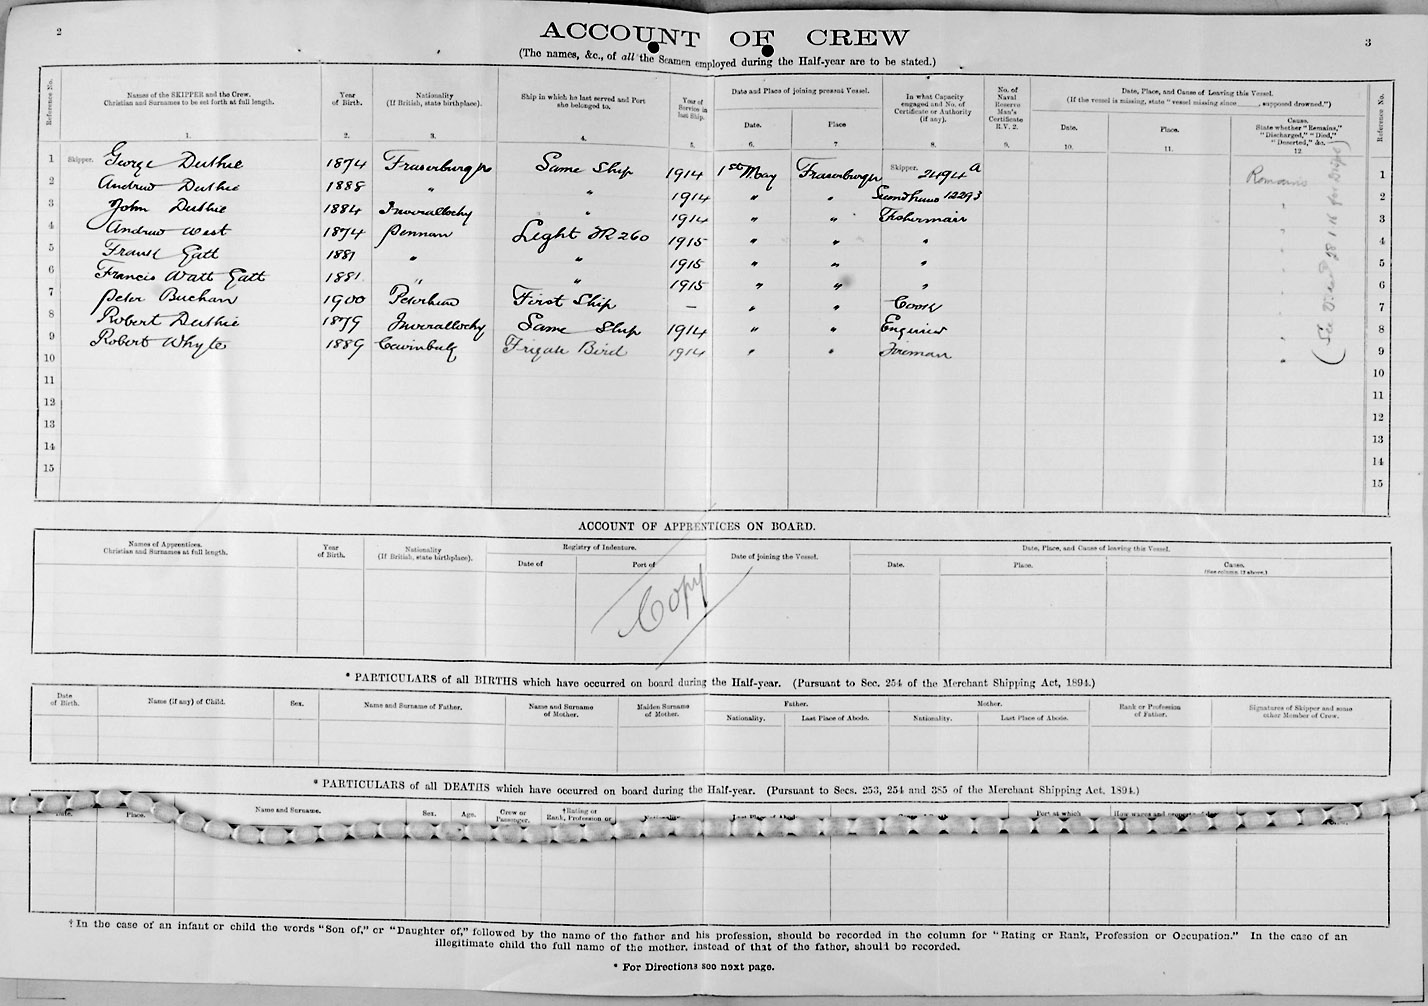 2
3
ACCOUNT OF CREW
(The names, &c., of all the Seamen employed during the Half-year are to be stated.)
Reference No.
Names of the SKIPPER and the Crew.
Christian and Surnames to be set forth at full length.
1.
Year of Birth.
2.
Nationality
(If British, state birthplace).
3.
Ship in which he last served and Port she belonged to.
4.
Year of Service in last Ship.
5.
Date and Place of joining present Vessel.
Date.
6.
Place
7
In what Capacity engaged and No. of Certificate or Authority (if any).
8.
No. of Naval Reserve Man's Certificate R.V. 2.
9.
Date, Place, and Cause of Leaving this Vessel.
(If the vessel is missing, state "vessel missing since ____, supposed drowned.")
Date.
10.
Place.
11.
Cause.
State whether "Remains," "Discharged," "Died," "Deserted," &c.
12
Reference No.
1 Skipper. George Duthie 1874 Fraserburgh Same Ship 1914 1st May Fraserburgh Skipper. 2494 A Remains 1
2 Andrew Duthie 1888 " " 1914 " " Second hand 12293 " 2
3 John Duthie 1884 Inverallochy " 1914 " " Fisherman " 3
4 Andrew West 1874 Pennan Light FR 260 1915 " " " " 4
5 Frank Gatt 1881 " " 1915 " " " " 5
6 Francis Watt Gatt 1881 " " 1915 " " " " 6
7 Peter Buchan 1900 Peterhead First Ship — " " Cook " 7
8 Robert Duthie 1879 Inverallochy Same Ship 1914 " " Engineer " 8
9 Robert Whyte 1889 Cairnbulg Frigate Bird 1914 " " Fireman " 9
10 10
11 11
12 12
13 13
14 14
15 15
ACCOUNT OF APPRENTICES ON BOARD.
Names of Apprentices.
Christian and Surnames at full length.
Year of Birth.
Nationality
(If British, state birthplace).
Registry of Indenture.
Date of
Port of
Date of joining the Vessel.
Date, Place, and Cause of leaving this Vessel.
Date.
Place.
Cause.
(See column 12 above.)
Copy
* PARTICULARS of all BIRTHS which have occurred on board during the Half-year. (Pursuant to Sec. 254 of the Merchant Shipping Act, 1894.)
Date of Birth.
Name (if any) of Child.
Sex.
Name and Surname of Father.
Name and Surname of Mother.
Maiden Surname of Mother.
Father.
Nationality.
Last Place of Abode.
Mother.
Nationality.
Last Place of Abode.
Rank or Profession of Father.
Signatures of Skipper and some other Member of Crew.
* PARTICULARS of all DEATHS which have occurred on board during the Half-year. (Pursuant to Secs. 253, 254 and 385 of the Merchant Shipping Act, 1894.)
Date.
Place.
Name and Surname.
Sex.
Age.
Crew or Passenger.
†Rating or Rank, Profession or
Nationality.
Last Place of Abode.
Port at which
† In the case of an infant or child the words "Son of," or "Daughter of," followed by the name of the father and his profession, should be recorded in the column for "Rating or Rank, Profession or Occupation." In the case of an
illegitimate child the full name of the mother, instead of that of the father, should be recorded.
* For Directions see next page.